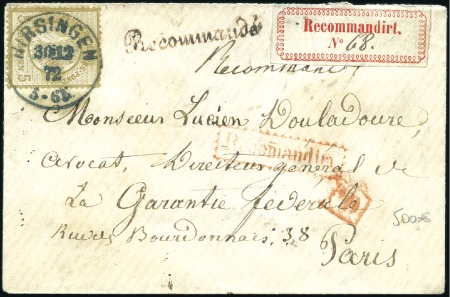 HÖRSINGEN
30 12
72
5-6N
5
Recommandé
Recommandirt.
No 68.
Recommandé
Monsieur Lucien Douladoure,
Recomandirt
avocat, Directeur général de
La Garantie fédérale
Rue des Bourdonnais, 38
Paris